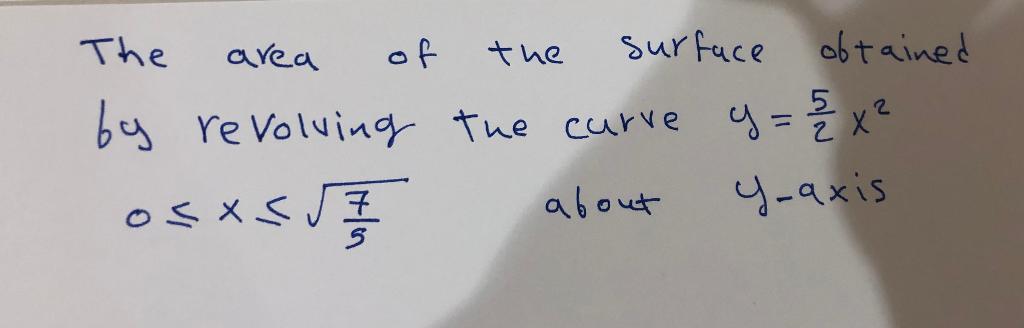 The area of the surface obtained
by revolving the curve y = 5/2 x²
0 ≤ x ≤ √(7/5) about y-axis